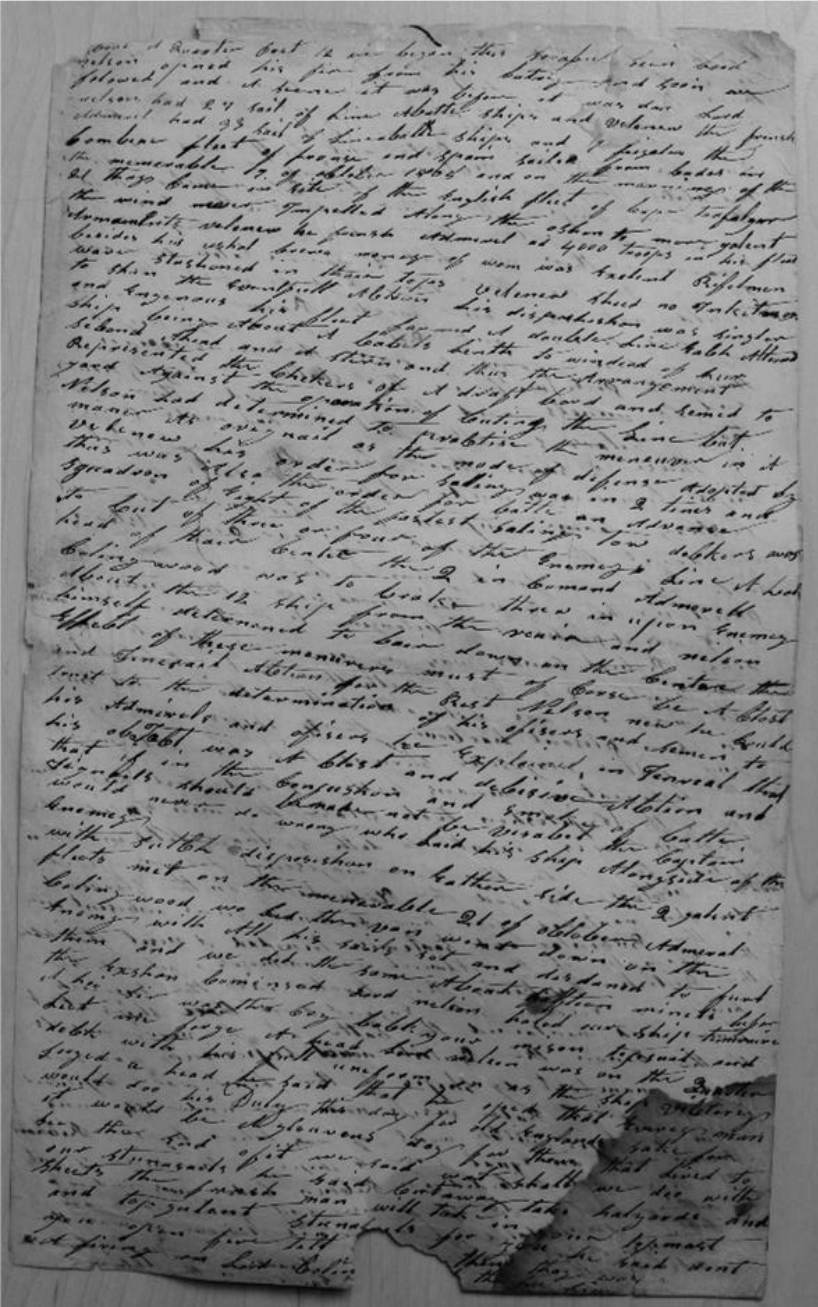 and A Quarter Past 12 we began this Lord
nelson opened his fire from his batery And soon we
folowed and it was before it was don Lord
nelson had 27 sail of Line Abattle ships and velenew the french
Admiral had 33 sail of Lineabattle ships and 7 frigates the
Combine fleet of france and spain sailed from Cades in
the memerable 19 of october 1805 and on the morning of the
21 thay Came in site of the English fleet of Cape trafalgar
the wind never Impelled Along the oshon to more galent
Armaments velenew he french Admeral ad 4000 troops in his fleet
besides his ushal Crews maney of wom was Exelent Rifelmen
wair stashoned in thair tops velenew shued no Inklination
to shun the Eventfull Action his disposhishon was singler
and Ingenous his fleet formed A double Line Eatch Alternet
ship being About A Cables lenth to windead of hur
second Ahead and A stern and thus the Arrangement
Represented the Chekers of A draft bord and semed to
gard Against the operation of Cuting the Line but
Nelson had determined to practise the maneuver in A
maner As oregnail as the mode of difense Adopted by
velenew his order for saling was in 2 lines and
this was Also the order for battle an Advance
squadron of Eight of the fastest saling tow deckers was
to Cut of three or four of the Enemeys Line A head
head of thair Center the 2 in Comand Admerell
Colingwood was to brake threw in upon Enemey
About the 12 ship from the reair and nelson
himself determened to bear down on the Center the
Effect of these maneuvers must of Corse be A Close
and Action for the Rest Nelson new he Could
trust to the determination of his ofisers and semen to
his Admirels and ofisers he Explained in Jenreal that
his obgect was A Close and decisive Action and
that if in the Confushon and smoke of battle
signels should not be visabel the Captain
would never do wrong who laid his ship Alongside of the
Enemey
with sutch disposishon on Eather side the 2 galent
fleets met on the memerable 21 of october Admeral
Colingwood who led the van went down on the
Enemy with All his sails set and disdaned to furl
them and we did the same About fifteen minets befor
the Ackshon Comensed Lord nelson haled our ship
was the boy back your mison topsail and
let me forge A head Lord nelson was on the Quarter
deck with his full uneform on as the ship
forged a head he said that he oped that Every man
would doo his Duty this day for old Englands sake for
it would be A Gloreous day for them that lived to
see the End of it we said what shall we doo with
our stunsails he said Cutaway halyards and
sheets the man will take take in your topmast
and topgalant stunsails for you he said dont
you open fire till
A firing on Lord Colin